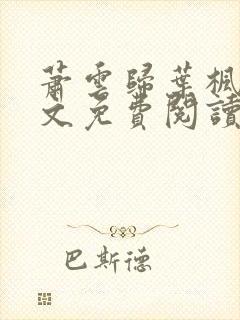 蕭雲歸葉楓
文免費閱讀
巴斯德